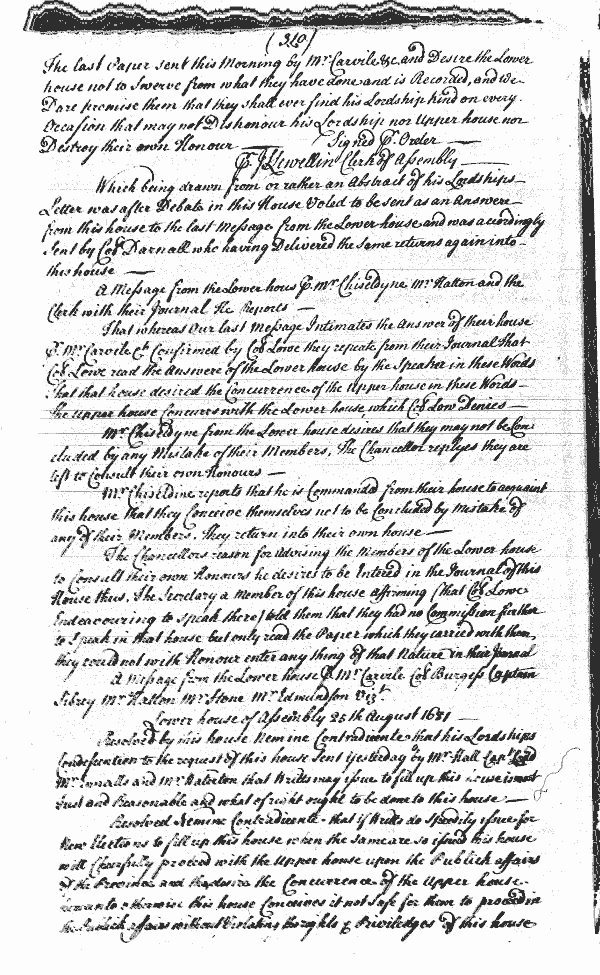 ( 310 )
The last Paper sent this Morning by Mr. Carvile &c and Desire the Lower
house not to Swerve from what they have done and is Recorded, and We
Dare promise them that they shall ever find his Lordship kind on every
Occasion that may not Dishonour his Lordship nor Upper house nor
Destroy their own Honour — Signed P. Order —
P. J Lewellin Clerk of Assembly —
Which being drawn from or rather an Abstract of his Lordships
Letter was after Debate in this House Voted to be sent as an Answere
from this house to the last Message from the Lower house and was accordingly
Sent by Col Darnall who having Delivered the same returns again into
this house —
A Message from the Lower hous P. Mr. Chiseldyne Mr. Hatton and the
Clerk with their Journal He Reports —
That whereas Our last Message Intimates the Answer of their house
P. Mr. Carvile &c Confirmed by Col Lowe they repeat from their Journal That
Col Lowe read the Answere of the Lower house by the Speaker in these Words
That that house desired the Concurrence of the Upper house in these Words
The Upper house Concurrs with the Lower house which Col Low Denies —
Mr. Chiseldyne from the Lower house desires that they may not be Con
cluded by any Mistake of their Members, The Chancellor replyes they are
left to Consult their own Honours —
Mr. Chiseldine reports that he is Commanded from their house to acquaint
this house that they Conceive themselves not to be Concluded by Mistake of
any of their Members. They return into their own house —
The Chancellors reason for advising the Members of the Lower house
to Consult their own Honours he desires to be Entered in the Journal of this
House thus. The Secretary a Member of this house affirming (that Col Lowe
Endeavouring to speak there) told them that they had no Commission further
to Speak in that house but only read the Paper which they carried with them,
they could not with Honour enter any thing of that Nature in their Journal
A Message from the Lower house P. Mr. Carvile Col Burgess Captain
Sibrey Mr. Hatton Mr. Stone Mr. Edmundson Vizt.
Lower house of Assembly 25th August 1681 —
Resolved by this house Nemine Contradicente that his Lordships
Condesention to the request of this house Sent yesterday by Mr. Hall Capt.
Mr. Ennalls and Mr. Waterton that Writts may issue to fill up this house is most
Just and Reasonable and what of right ought to be done to this house —
Resolved Nemine Contradicente that if Writts do speedily issue for
New Elections to fill up this house when the same are so issued this house
will Chearfully proceed with the Upper house upon the Publick affairs
of the Province and they desire the Concurrence of the Upper house
hereunto otherwise this house Conceives it not Safe for them to proceed in
the Publick affairs without Violating the rights & Priviledges of this house